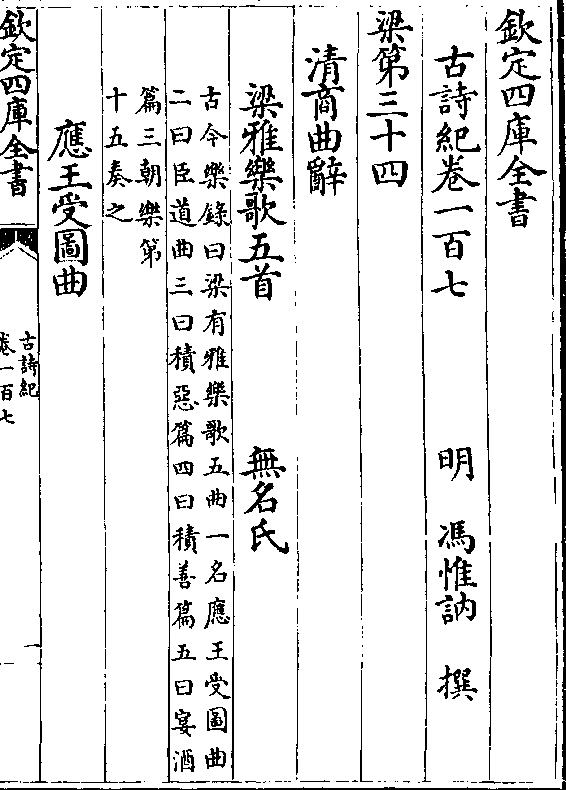 欽定四庫全書
古詩紀卷一百七
明 馮惟訥 撰
梁第三十四
清商曲辭
梁雅樂歌五首 無名氏
古今樂錄曰梁有雅樂歌五曲一名應王受圖曲
二曰臣道曲三曰積惡篇四曰積善篇五曰宴酒
篇三朝樂第
十五奏之
應王受圖曲
欽定四庫全書
古詩紀
卷一百七
一